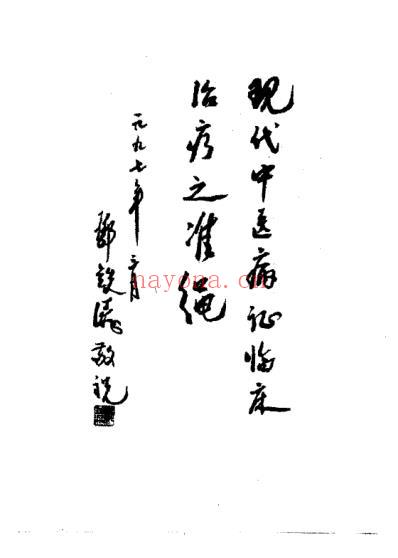 现代中医病证临床
治疗之准绳
一九九七年三月
邓铁涛敬祝
nayona.cn